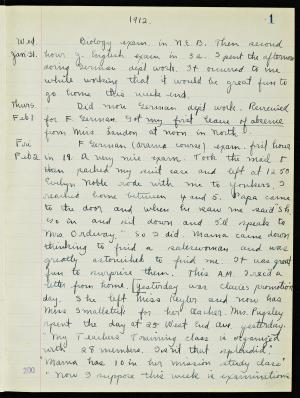 1912. 1
Wed. Biology exam. in N.E.B. Then second
Jan. 31. hour of English exam in 32. I spent the afternoon
doing German dept work. It occurred to me
while working that it would be great fun to
go home this week-end.
Thurs. Did more German dept work. Reviewed
Feb 1 for F. German. Got my first leave of absence
from Miss Landon at noon in North.
Fri F. German (drama course) exam. first hour
Feb 2 in 19. A very nice exam. Took the mail &
then packed my suit case and left at 12.50
Evelyn Noble rode with me to Yonkers. I
reached home between 4 and 5. Papa came
to the door and when he saw me said "Sh
Go in and sit down and I'll speak to
Mrs. Ordway" So I did. Mama came down
thinking to find a saleswoman and was
greatly astonished to find me. It was great
fun to surprise them. This A.M. I rec'd a
letter from home. "Yesterday was Claire's promotion
day. She left Miss Keyler and now has
Miss Smalltick for her teacher. Mrs. Pugsley
spent the day at 25 West End Ave. yesterday.
"My Teachers Training class is organized
with 28 members. Isn't that splendid.
"Mama has 10 in her mission study class"
"Now I suppose this week is examinations
200